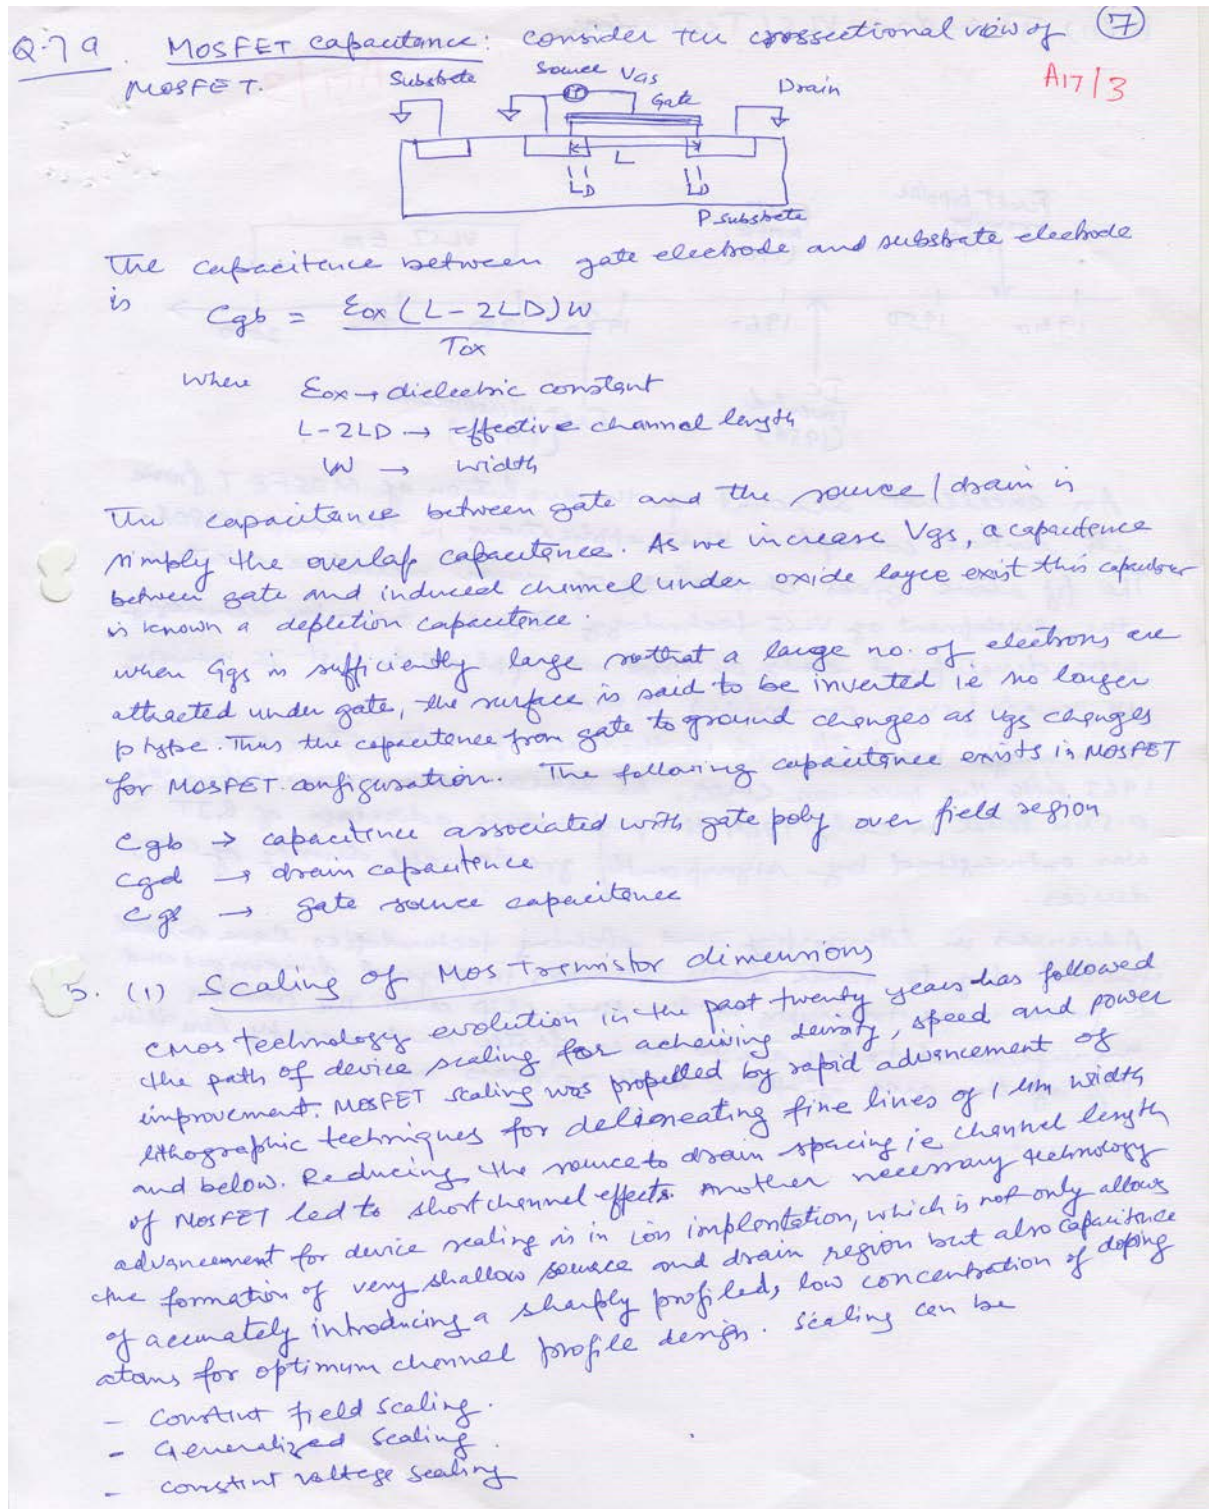 Q.7 a. MOSFET capacitance: consider the crossectional view of 7
MOSFET.
A17/3
Substrete Source VGS Gate Drain
L
LD LD
P substrete
The capacitence between gate electrode and substrate electrode
is Cgb = Eox (L - 2LD) W
Tox
Where Eox → dielectric constant
L-2LD → effective channel length
W → width
The capacitance between gate and the source/drain is
simply the overlap capacitence. As we increase Vgs, a capacitence
between gate and induced channel under oxide layce exist this capacitor
is known a depletion capacitence.
when Ggs is sufficiently large sothat a large no. of electrons are
attracted under gate, the surface is said to be inverted ie no longer
p type. Thus the capacitence from gate to ground changes as vgs changes
for MOSFET configuration. The following capacitance exists in MOSFET
Cgb → capacitence associated with gate poly over field region
Cgd → drain capacitence
Cgs → gate source capacitence
5. (1) Scaling of MOS Transistor dimensions
CMOS technology evolution in the past twenty years has followed
the path of device scaling for acheiving density, speed and power
improvement. MOSFET scaling was propelled by rapid advancement of
lithographic techniques for delineating fine lines of 1 um width
and below. Reducing the source to drain spacing ie channel length
of MOSFET led to short channel effects. Another necessary technology
advancement for device scaling is in ion implontation, which is not only allows
the formation of very shallow source and drain region but also capacitance
of accurately introducing a sharply profiled, low concentration of doping
atoms for optimum channel profile design. Scaling can be
- Constant field scaling.
- Generalized Scaling.
- constant voltage scaling